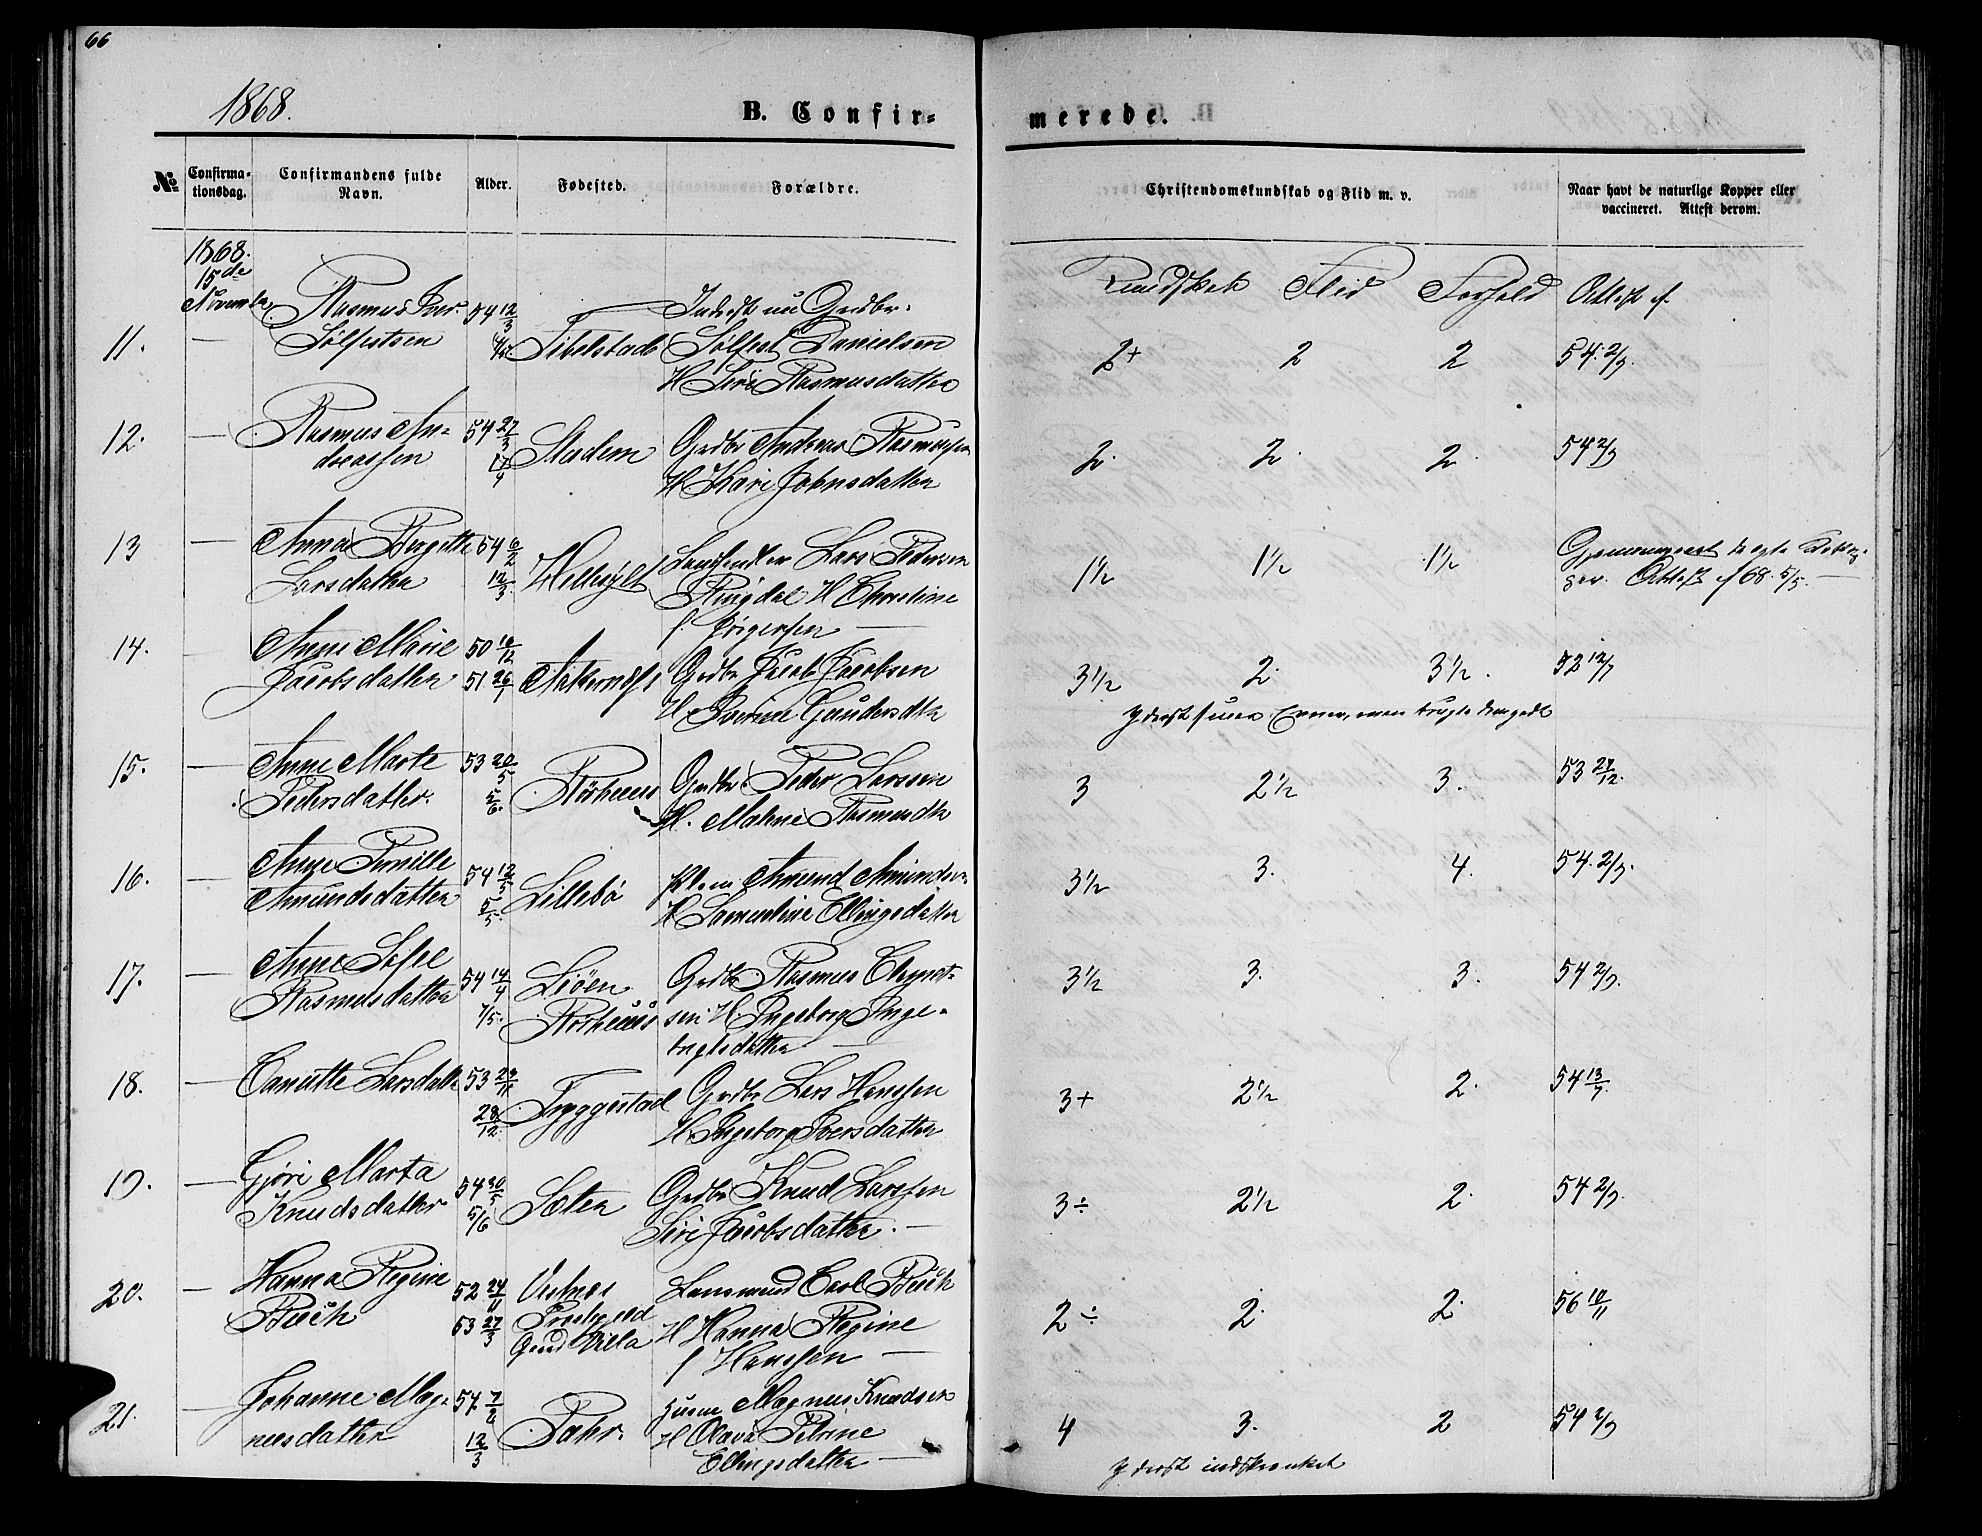 66
1868.
B. Confir-
merede.
No
Confirma-
tionsdag.
Confirmandens fulde
Navn.
Alder.
Fødested.
Forældre.
Christendomskundskab og Flid m. v.
Naar havt de naturlige Kopper eller
vaccineret. Attest derom.
1868.
15de
November
Kundskab Flid Forhold Attest af
11. — Rasmus Iver
Sølfestsen
54 12/3
Tibelstad
Inderst nu Grdbr.
Sølfest Danielsen
H Siri Rasmusdatter
2+ 2 2 54. 2/9
12. — Rasmus An-
dreassen
54 27/3
17/4
Stadem
Grdbr Andreas Rasmussen
H Kari Johnsdatter
2. 2. 2. 54 2/9
13 — Anna Bergitte
Larsdatter
54 6/2
12/3.
Hellesylt
Landhandler Lars Pedersen
Ringdal H Choreline
f. Jörgensen —
1½ 1½ 1½
Attest af 68. 5/5. —
14. — Anne Marie
Jacobsdatter
50 16/12
51 26/1
Grdbr Jacob Jacobsen
H. Iverine Gundersdtr
3½ 2. 3½. 52 12/7
15. — Anne Marte
Pedersdatter.
53 20/5
5/6.
Korshuus
Grdbr. Peder Larssen
H. Malene Rasmusdtr
3 2½ 3. 53 27/12.
16. — Anne Pernille
Amundsdatter
54 12/3
5/5.
Lillebö
Amund Amundsen
H Samueline Ellingsdatter
3½ 3. 4. 54. 2/9.
17. — Anne Sofie
Rasmusdatter
54 14/4
7/5.
Liöen
Korshuus
Grdbr Rasmus Chynt-
sen H. Ingeborg Inge-
brigtsdatter —
3½ 3. 3. 54 2/9.
18. — Canutte Larsdatter
53 29/11
28/12.
Tryggestad
Grdbr Lars Hanssen
H. Ingeborg Iversdatter
3+ 2½ 2. 54 13/7.
19. — Gjöri Marta
Knudsdatter
54 30/5
5/6
Sæter
Grdbr Knud Larssen
Siri Jacobsdatter. —
3÷ 2½ 2. 54 2/9.
20. — Hanna Regine
Buch
52 24/11
53 27/3
Vestnes
Præstegjeld
Grdbr Villa
Lensmand Carl Buch
H Hanna Regine
f Hanssen —
2÷ 2. 2. 56 10/11
21. — Johanne Mag-
nusdatter
54 7/2
12/3
Fahr.
Husm Magnus Knudsen
H Olave Petrine
Ellingsdatter —
4 3. 2 54 2/9
Yderst indskrænket